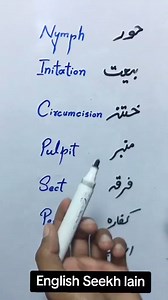 Nymph حور
Initation بیعت
Circumcision ختنہ
Pulpit منبر
Sect فرقہ
کفارہ
English Seekh lain